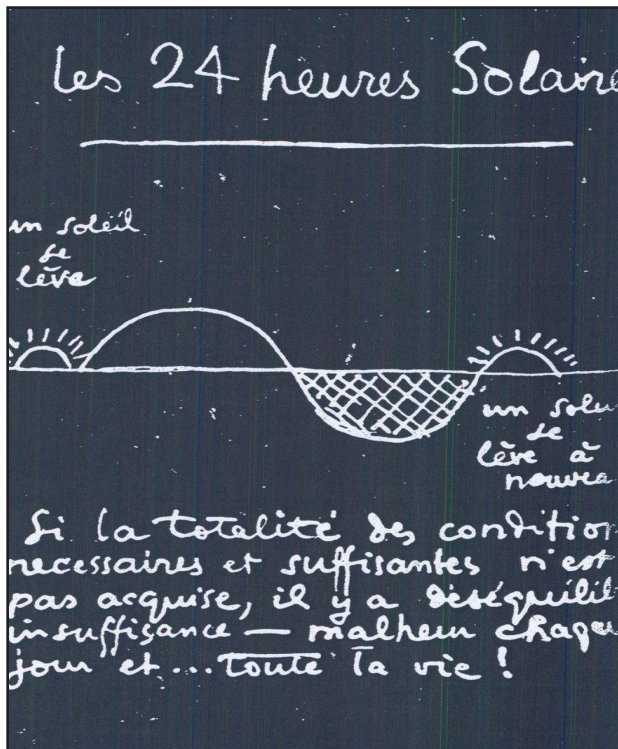 les 24 heures Solaire
un soleil
se
lève
un solei
se
lève à
nouvea
Si la totalité des condition
necessaires et suffisantes n'est
pas acquise, il y a deséquilib
insuffisance — malheur chaqu
jour et ... toute la vie !